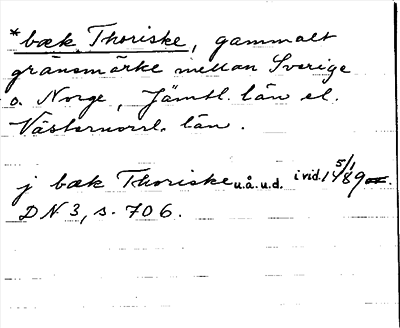 *bæk Thoriske, gammalt
gränsmärke mellan Sverige
o. Norge, Jämtl. län el.
Västernorrl. län.
j bæk Thoriske u.å.u.d. i vid. 5/1 1489.
DN 3, s. 706.